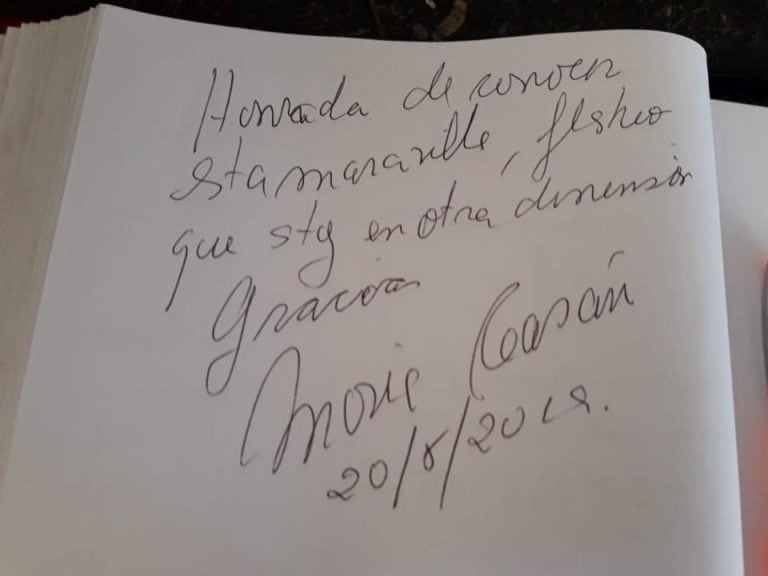 Honrada de conocer
esta maravilla, flasheo
que stoy en otra dimensión
Gracias
Moria Casán
20/8/2019.